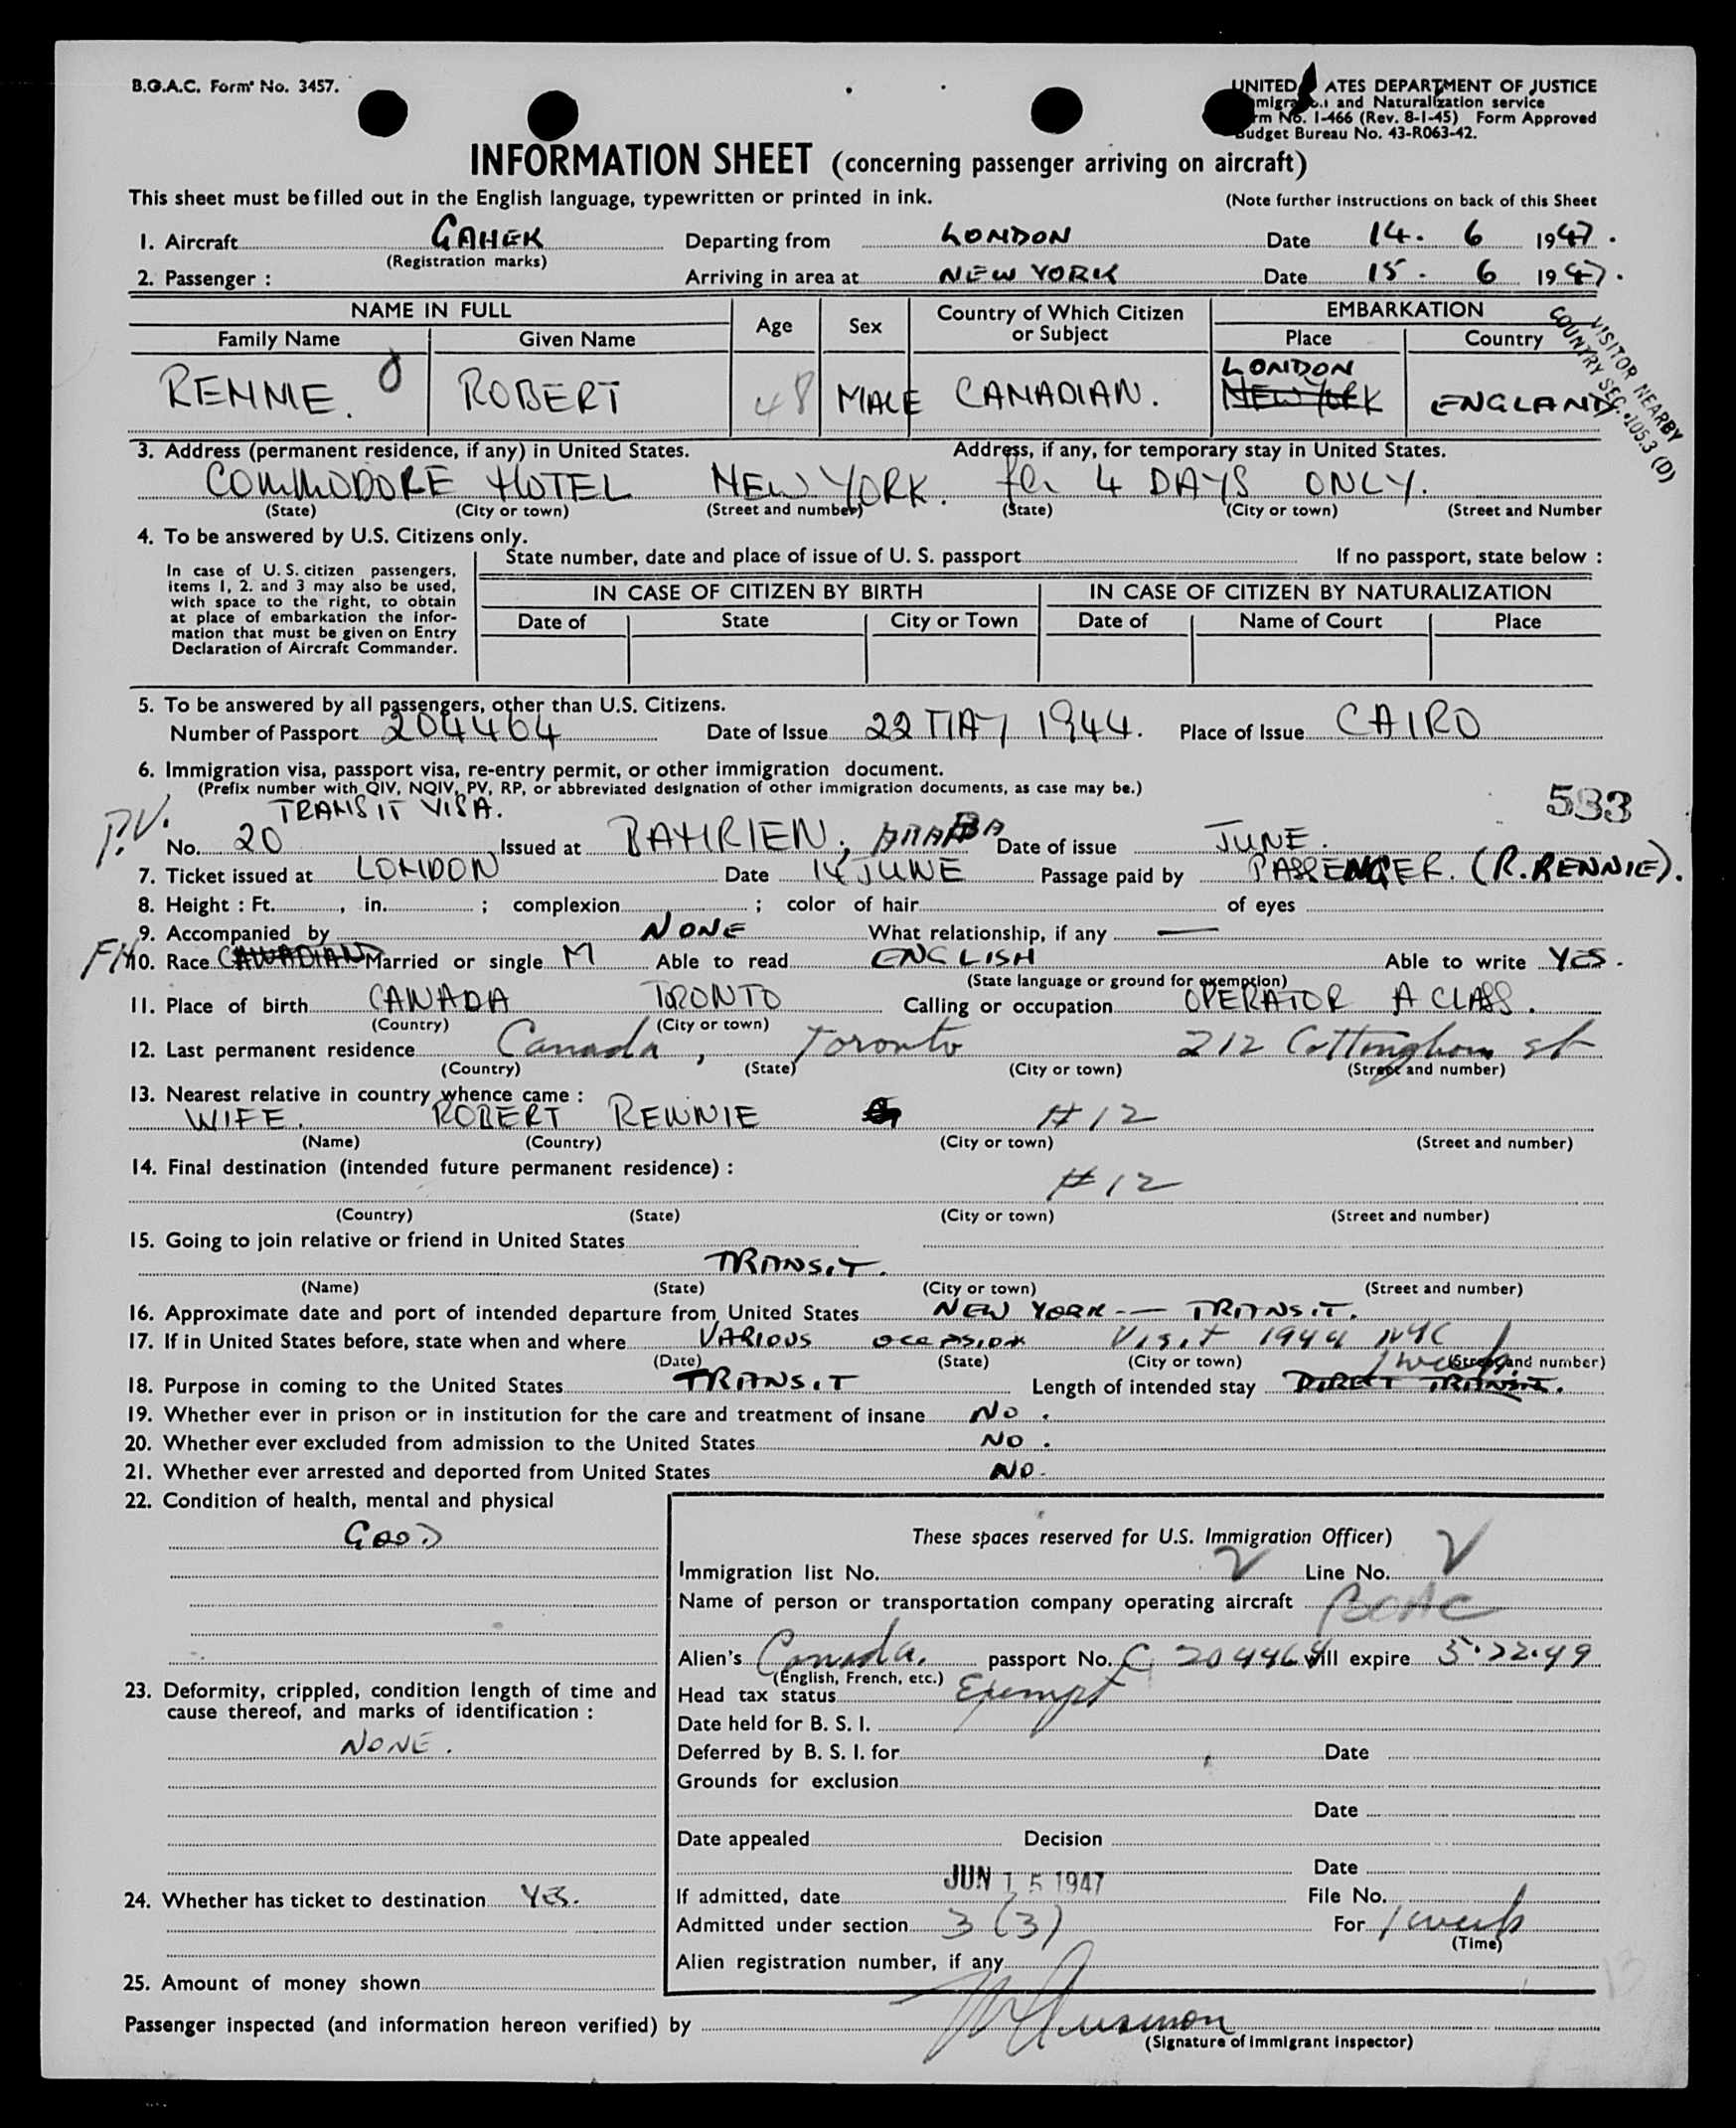 B.O.A.C. Form No. 3457.
UNITED ATES DEPARTMENT OF JUSTICE
and Naturalization service
No. I-466 (Rev. 8-1-45) Form Approved
Budget Bureau No. 43-R063-42.
INFORMATION SHEET (concerning passenger arriving on aircraft)
This sheet must be filled out in the English language, typewritten or printed in ink. (Note further instructions on back of this Sheet
1. Aircraft GAHEK Departing from LONDON Date 14. 6 1947.
(Registration marks)
2. Passenger : Arriving in area at NEW YORK Date 15. 6 1947.
NAME IN FULL Age Sex Country of Which Citizen or Subject EMBARKATION
Family Name Given Name Place Country
VISITOR NEARBY
COUNTRY SEC. 105.3 (D)
LONDON
RENNIE. ROBERT 48 MALE CANADIAN. NEW YORK ENGLAND
3. Address (permanent residence, if any) in United States. Address, if any, for temporary stay in United States.
COMMODORE HOTEL NEW YORK. for 4 DAYS ONLY.
(State) (City or town) (Street and number) (State) (City or town) (Street and Number
4. To be answered by U.S. Citizens only.
State number, date and place of issue of U. S. passport If no passport, state below :
In case of U. S. citizen passengers,
items 1, 2. and 3 may also be used,
with space to the right, to obtain
at place of embarkation the infor-
mation that must be given on Entry
Declaration of Aircraft Commander.
IN CASE OF CITIZEN BY BIRTH IN CASE OF CITIZEN BY NATURALIZATION
Date of State City or Town Date of Name of Court Place
5. To be answered by all passengers, other than U.S. Citizens.
Number of Passport 204464 Date of Issue 22 MAY 1944. Place of Issue CAIRO
6. Immigration visa, passport visa, re-entry permit, or other immigration document.
(Prefix number with QIV, NQIV, PV, RP, or abbreviated designation of other immigration documents, as case may be.)
P.V. TRANSIT VISA. 533
No. 20 Issued at BAHRIEN, Date of issue JUNE.
7. Ticket issued at LONDON Date 14 JUNE Passage paid by PASSENGER. (R. RENNIE).
8. Height : Ft. , in. ; complexion ; color of hair of eyes
9. Accompanied by NONE What relationship, if any —
10. Race CANADIAN Married or single M Able to read ENGLISH Able to write YES.
(State language or ground for exemption)
11. Place of birth CANADA TORONTO Calling or occupation OPERATOR A CLASS.
(Country) (City or town)
12. Last permanent residence Canada, Toronto 212 Cottingham st
(Country) (State) (City or town) (Street and number)
13. Nearest relative in country whence came :
WIFE. ROBERT RENNIE #12
(Name) (Country) (City or town) (Street and number)
14. Final destination (intended future permanent residence) :
#12
(Country) (State) (City or town) (Street and number)
15. Going to join relative or friend in United States
TRANSIT.
(Name) (State) (City or town) (Street and number)
16. Approximate date and port of intended departure from United States NEW YORK -- TRANSIT.
17. If in United States before, state when and where VARIOUS OCCASION Visit 1944 NYC
(Date) (State) (City or town) (Street and number)
1 week
18. Purpose in coming to the United States TRANSIT Length of intended stay DIRECT TRANSIT.
19. Whether ever in prison or in institution for the care and treatment of insane NO.
20. Whether ever excluded from admission to the United States NO.
21. Whether ever arrested and deported from United States NO.
22. Condition of health, mental and physical
GOOD
23. Deformity, crippled, condition length of time and
cause thereof, and marks of identification :
NONE.
24. Whether has ticket to destination YES.
25. Amount of money shown
These spaces reserved for U.S. Immigration Officer)
Immigration list No. V Line No. V
Name of person or transportation company operating aircraft BOAC
Alien's Canada. passport No. C 204464 will expire 5.22.49
(English, French, etc.)
Head tax status Exempt
Date held for B. S. I.
Deferred by B. S. I. for Date
Grounds for exclusion
Date
Date appealed Decision
Date
If admitted, date JUN 15 1947 File No.
Admitted under section 3 (3) For 1 week
(Time)
Alien registration number, if any
Passenger inspected (and information hereon verified) by
(Signature of Immigrant Inspector)